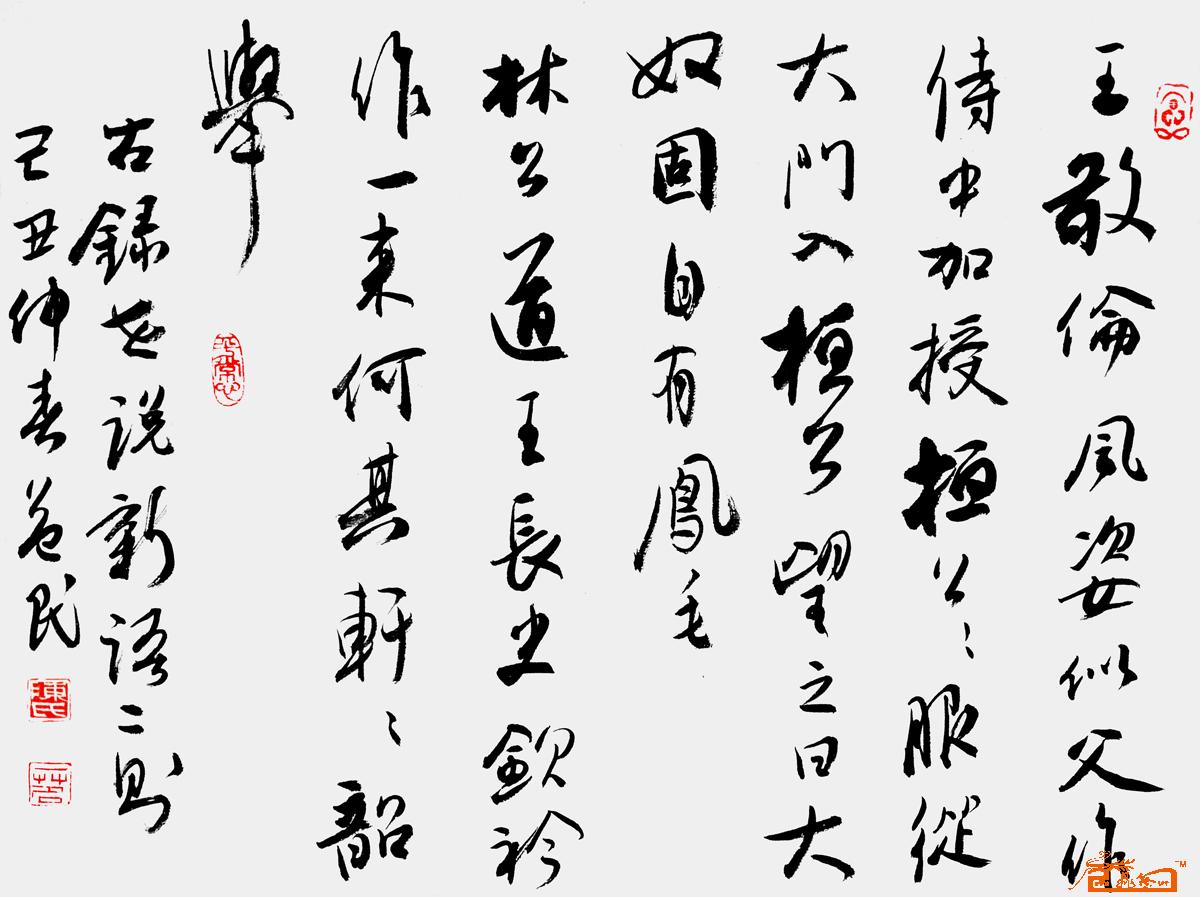 王敬倫風姿似父作
侍中加授桓公〻服從
大門入桓公望之曰大
奴固自有鳳毛
林公道王長史歛衿
作一来何其軒〻韶
舉
右録世説新語二則
己丑仲春益民